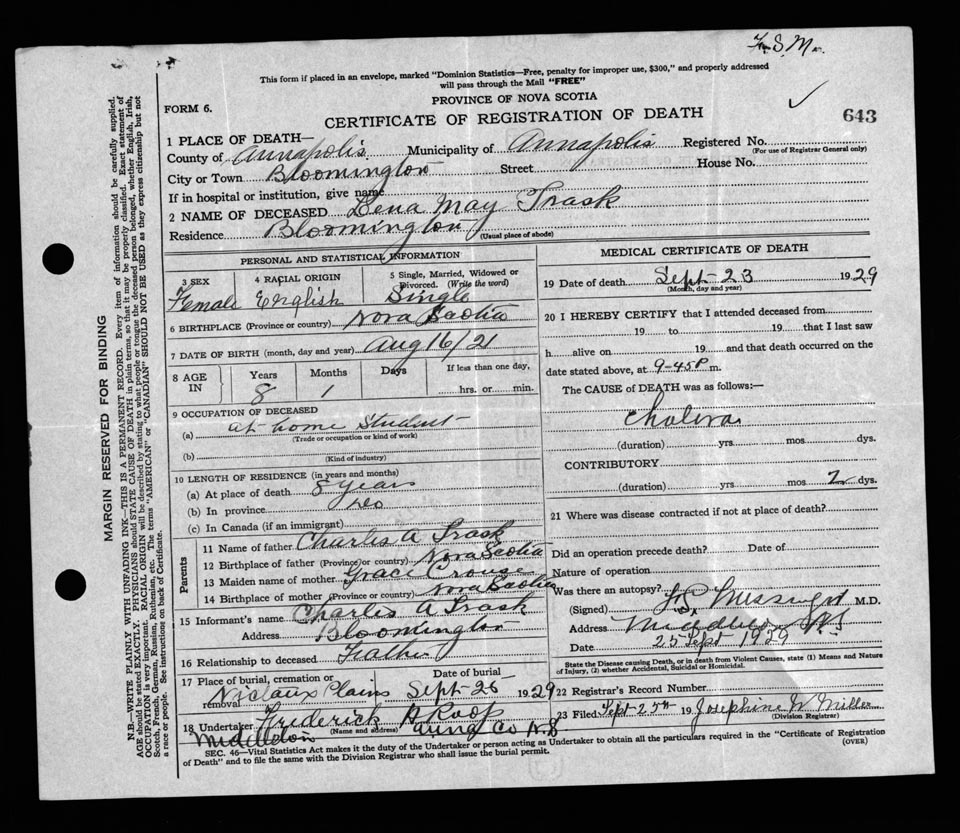 F.S.M.
This form if placed in an envelope, marked "Dominion Statistics—Free, penalty for improper use, $300," and properly addressed
will pass through the Mail "FREE"
PROVINCE OF NOVA SCOTIA
FORM 6.
CERTIFICATE OF REGISTRATION OF DEATH
643
1 PLACE OF DEATH—
County of Annapolis Municipality of Annapolis Registered No.
(For use of Registrar General only)
City or Town Bloomington Street House No.
If in hospital or institution, give name
2 NAME OF DECEASED Lena May Trask
Residence Bloomington
(Usual place of abode)
PERSONAL AND STATISTICAL INFORMATION
3 SEX 4 RACIAL ORIGIN 5 Single, Married, Widowed or Divorced. (Write the word)
Female English Single
6 BIRTHPLACE (Province or country) Nova Scotia
7 DATE OF BIRTH (month, day and year) Aug 16/21
8 AGE IN Years Months Days If less than one day,
8 1 hrs. or min.
9 OCCUPATION OF DECEASED
(a) at home Student
(Trade or occupation or kind of work)
(b)
(Kind of industry)
10 LENGTH OF RESIDENCE (in years and months)
(a) At place of death 8 years
(b) In province do
(c) In Canada (if an immigrant)
Parents
11 Name of father Charles A Trask
12 Birthplace of father (Province or country) Nova Scotia
13 Maiden name of mother Grace Crouse
14 Birthplace of mother (Province or country) Nova Scotia
15 Informant's name Charles A Trask
Address Bloomington
16 Relationship to deceased Father
17 Place of burial, cremation or removal Date of burial
Nictaux Plains Sept 25 1929
18 Undertaker Frederick A Roop
(Name and address)
Middleton Anna Co N.S
MEDICAL CERTIFICATE OF DEATH
19 Date of death Sept 23 1929
(Month, day and year)
20 I HEREBY CERTIFY that I attended deceased from
19 to 19 that I last saw
h alive on 19 and that death occurred on the
date stated above, at 9-45 P m.
The CAUSE of DEATH was as follows:—
Cholera
(duration) yrs mos dys.
CONTRIBUTORY
(duration) yrs mos 2 dys.
21 Where was disease contracted if not at place of death?
Did an operation precede death? Date of
Nature of operation
Was there an autopsy?
(Signed) Messenger M.D.
Address Middleton N.S
Date 25 Sept 1929
State the Disease causing Death, or in death from Violent Causes, state (1) Means and Nature
of Injury, (2) whether Accidental, Suicidal or Homicidal.
22 Registrar's Record Number
23 Filed Sept 25th 19 Josephine W Miller
(Division Registrar)
SEC. 46—Vital Statistics Act makes it the duty of the Undertaker or person acting as Undertaker to obtain all the particulars required in the "Certificate of Registration
of Death" and to file the same with the Division Registrar who shall issue the burial permit.
(OVER)
MARGIN RESERVED FOR BINDING
N.B.—WRITE PLAINLY WITH UNFADING INK—THIS IS A PERMANENT RECORD. Every item of information should be carefully supplied.
AGE should be stated EXACTLY. PHYSICIANS should STATE CAUSE OF DEATH in plain terms, so that it may be properly classified. Exact statement of
OCCUPATION is very important. RACIAL ORIGIN will be described by stating to what people or tongue the deceased person belonged, whether English, Irish,
Scotch, French, German, Russian, Ruthenian, etc. The terms "AMERICAN" or "CANADIAN" SHOULD NOT BE USED as they express citizenship but not
a race or people. See instructions on back of Certificate.